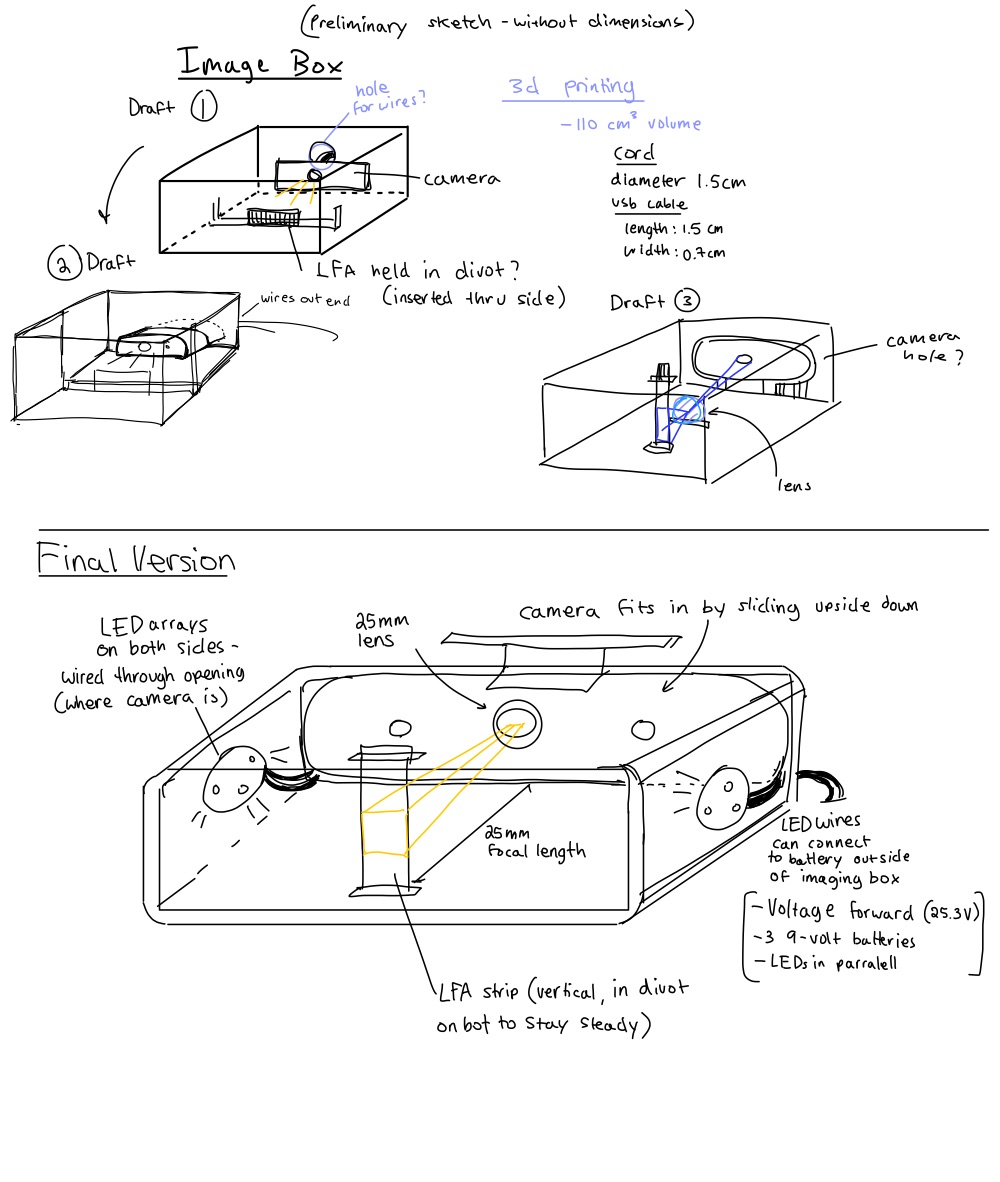 (Preliminary sketch - without dimensions)
Image Box
Draft 1
hole
for wires?
camera
LFA held in divot?
(inserted thru side)
3d printing
- 110 cm³ volume
cord
diameter 1.5cm
usb cable
length: 1.5 cm
width: 0.7cm
2 Draft
wires out end
Draft 3
camera
hole?
lens
Final Version
LED arrays
on both sides -
wired through opening
(where camera is)
25mm
lens
camera fits in by sliding upside down
25mm
focal length
LED wires
can connect
to battery outside
of imaging box
- Voltage forward (25.3V)
- 3 9-volt batteries
- LEDs in parralell
LFA strip (vertical, in divot
on bot to stay steady)